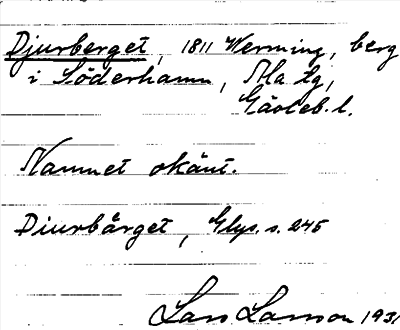 Djurberget, 1811 Werming, berg
i Söderhamn, Ala tg,
Gävleb. l.
Namnet okänt.
Diurbärget, Glys. s. 245
Lars Larson 1931